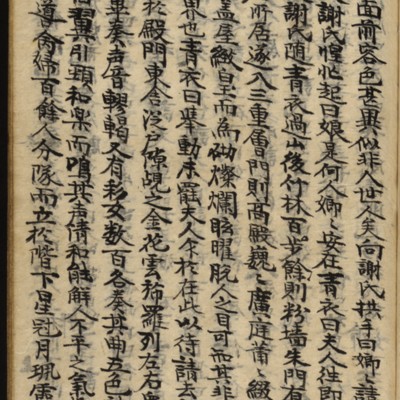 面前容色甚異似非人世人矣向謝氏拱手曰娘々請
謝氏惶忙起曰娘是何人娘々安在青衣曰夫人往即
謝氏随青衣過山後竹林百步餘則粉墻朱門有
所居遂入三重層門則高殿巍々廣庭莆々綴
盖屋綴白玉而為砌燦爛眩曜脫人之目可而其非
界也青衣曰擧動未罷夫人今於在此以待請去
於殿門東舍從户隙覘之金花雲稀羅列左右
奏声音轇轕又有彩女數百各奏其曲五色
翼引頸和樂而鳴其声倩和能解人不平之氣
導命婦百餘人分隊而立於階下星冠月珮雲